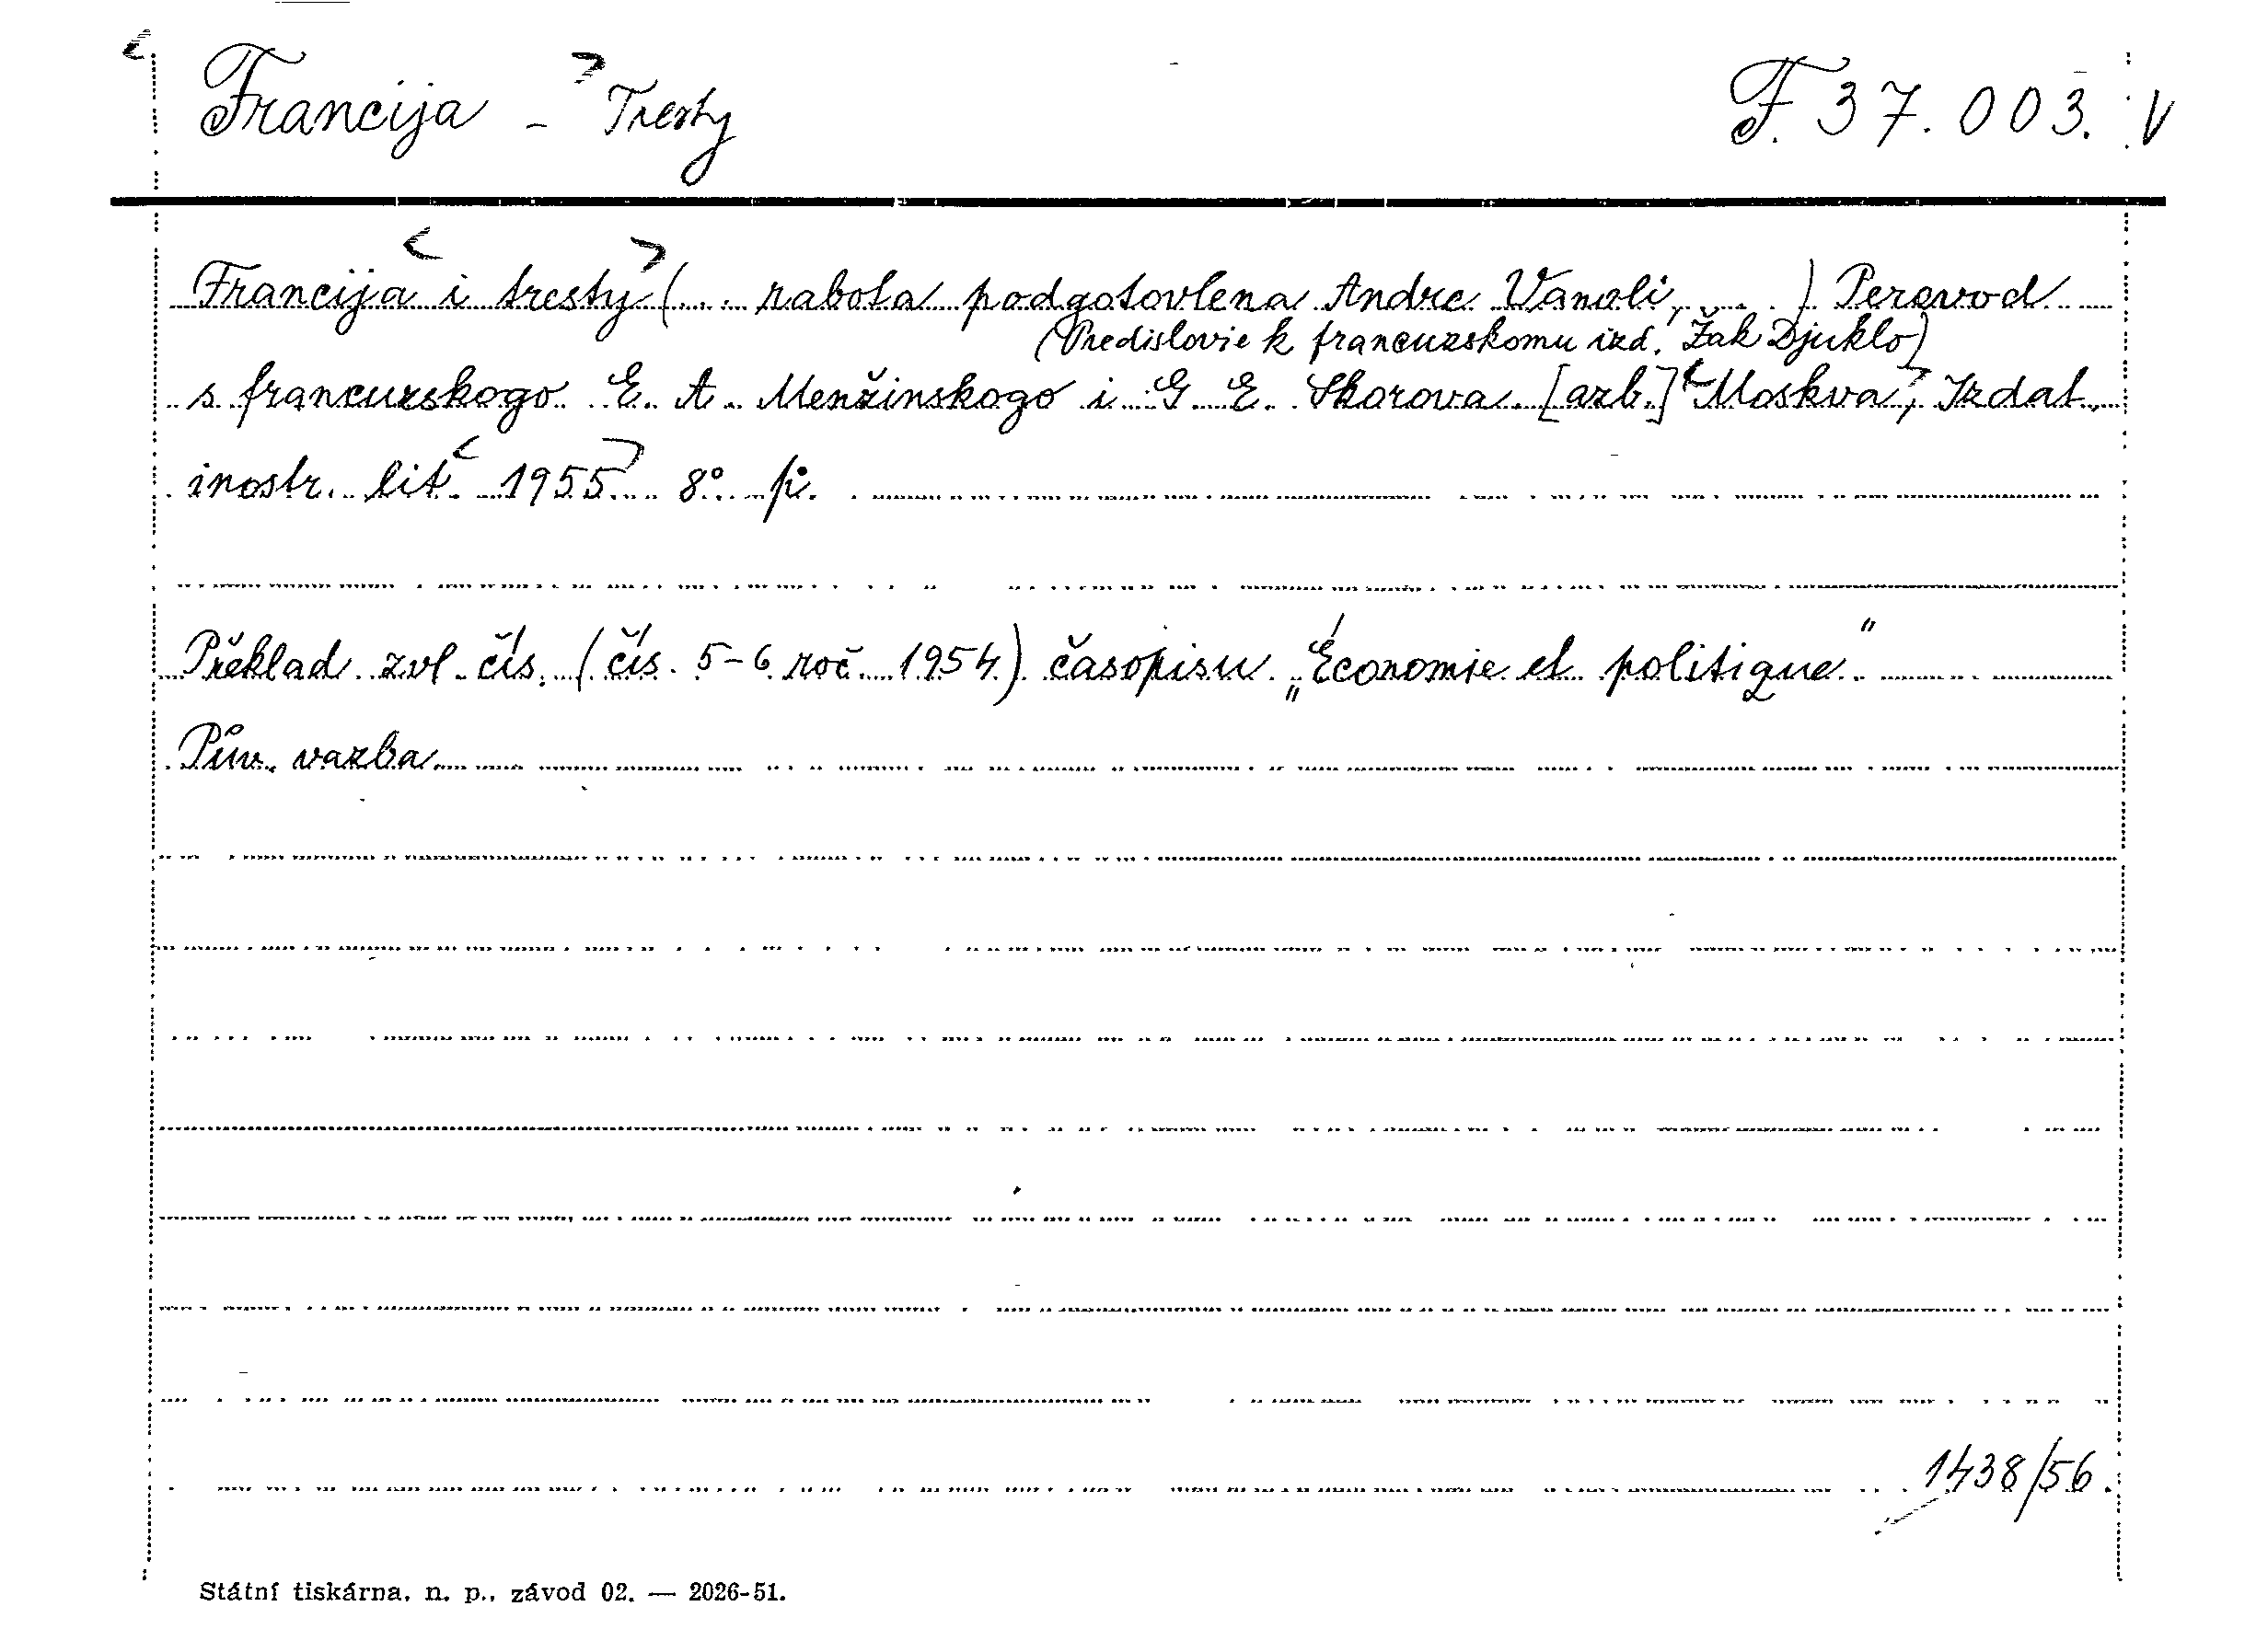 Francija - Tresty F. 37.003. V
Francija i tresty (... rabota podgotovlena Andre Vanoli, ...) Perevod
(Predislovie k francuzskomu izd. Žak Djuklo)
s francuzskogo E. A. Menžinskogo i G. E. Skorova. [azb.] Moskva, Izdat.
inostr. lit. 1955. 8° p.
Překlad zvl. čís. (čís. 5-6 roč. 1954) časopisu „Économie et politique“
Pův. vazba.
1438/56.
Státní tiskárna, n. p., závod 02. — 2026-51.